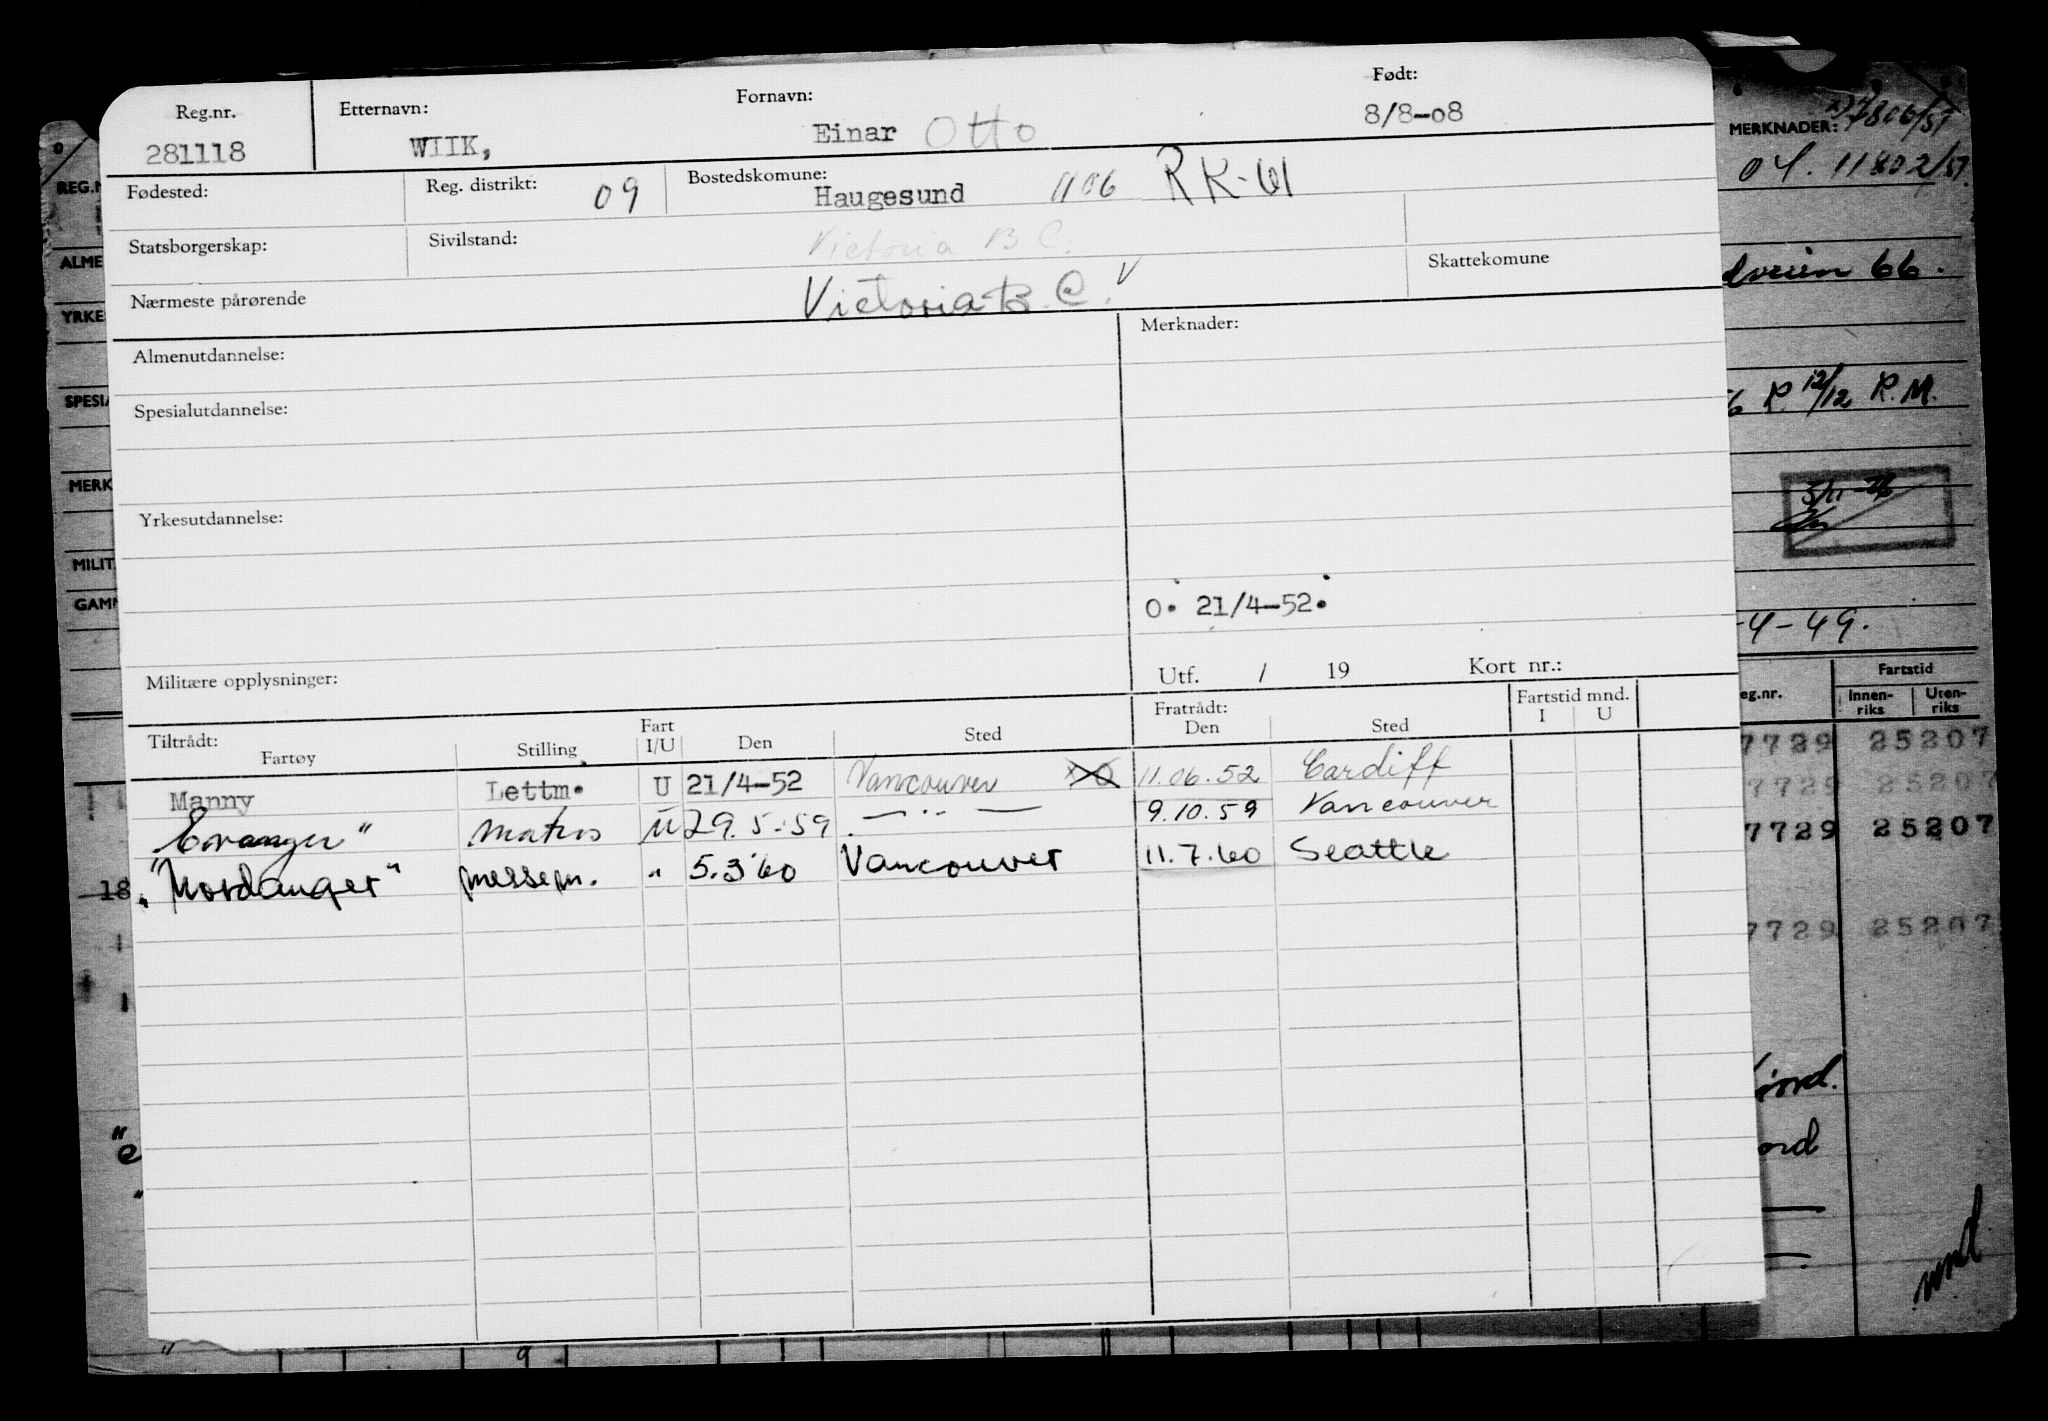 Reg.nr. Etternavn: Fornavn: Født:
281118 WIIK, Einar Otto 8/8-08
Fødested: Reg. distrikt: 09 Bostedskomune: Haugesund 1106 RK-61
Statsborgerskap: Sivilstand: Victoria B C.
Nærmeste pårørende Victoria B. C. Skattekomune
Almenutdannelse: Merknader:
Spesialutdannelse:
Yrkesutdannelse:
O. 21/4-52.
Militære opplysninger: Utf. / 19 Kort nr.:
Tiltrådt: Fart Fratrådt: Fartstid mnd.
Fartøy Stilling I/U Den Sted Den Sted I U
Manny Lettm. U 21/4-52 Vancouver 11.06.52 Cardiff
Evanger" Matros U 29.5.59 — " — 9.10.59 Vancouver
"Nordanger" messepi. " 5.3 60 Vancouver 11.7.60 Seattle
MERKNADER: 27806/51
04. 11802/51.
REG.N
ALME
YRKE
66.
SPESIA
R 12/12 R.M.
MERK
MILIT
GAMM
-4-49.
eg.nr. Fartstid
Innen-riks Uten-riks
7729 25207
7729 25207
7729 25207
18
7729 25207
ord
mnd